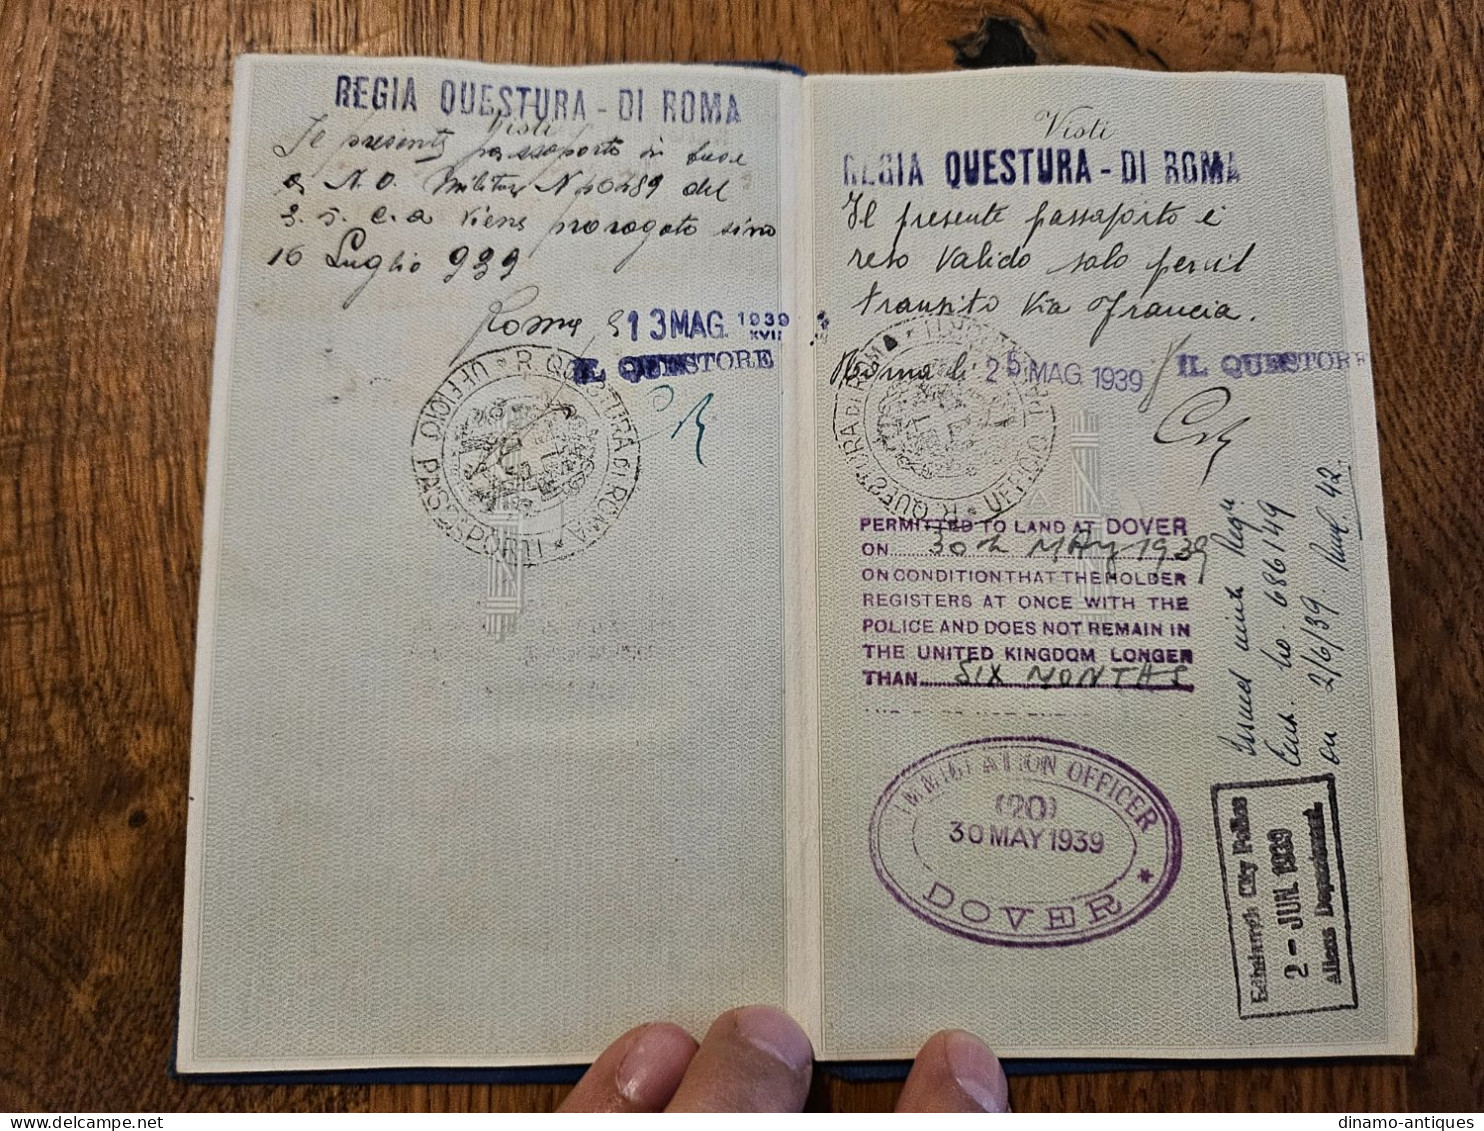 REGIA QUESTURA - DI ROMA
Visti
Il presente passaporto in base
a N.O. Militare N 40489 del
c.a viene prorogato sino
16 Luglio 939
Roma 13 MAG. 1939
XVII
IL QUESTORE
R. QUESTURA DI ROMA * UFFICIO PASSAPORTI *
Visti
REGIA QUESTURA - DI ROMA
Il presente passaporto è
reso valido solo per il
transito via Francia.
Roma li 25 MAG 1939
IL QUESTORE
R. QUESTURA DI ROMA * UFFICIO PASSAPORTI *
PERMITTED TO LAND AT DOVER
ON 30th MAY 1939
ON CONDITION THAT THE HOLDER
REGISTERS AT ONCE WITH THE
POLICE AND DOES NOT REMAIN IN
THE UNITED KINGDOM LONGER
THAN SIX MONTHS
IMMIGRATION OFFICER
(20)
30 MAY 1939
DOVER *
Issued with Regn
Cert. No. 686149
on 2/6/39. 42.
Edinburgh City Police
2 - JUN. 1939
Aliens Department.
dinamo-antiques